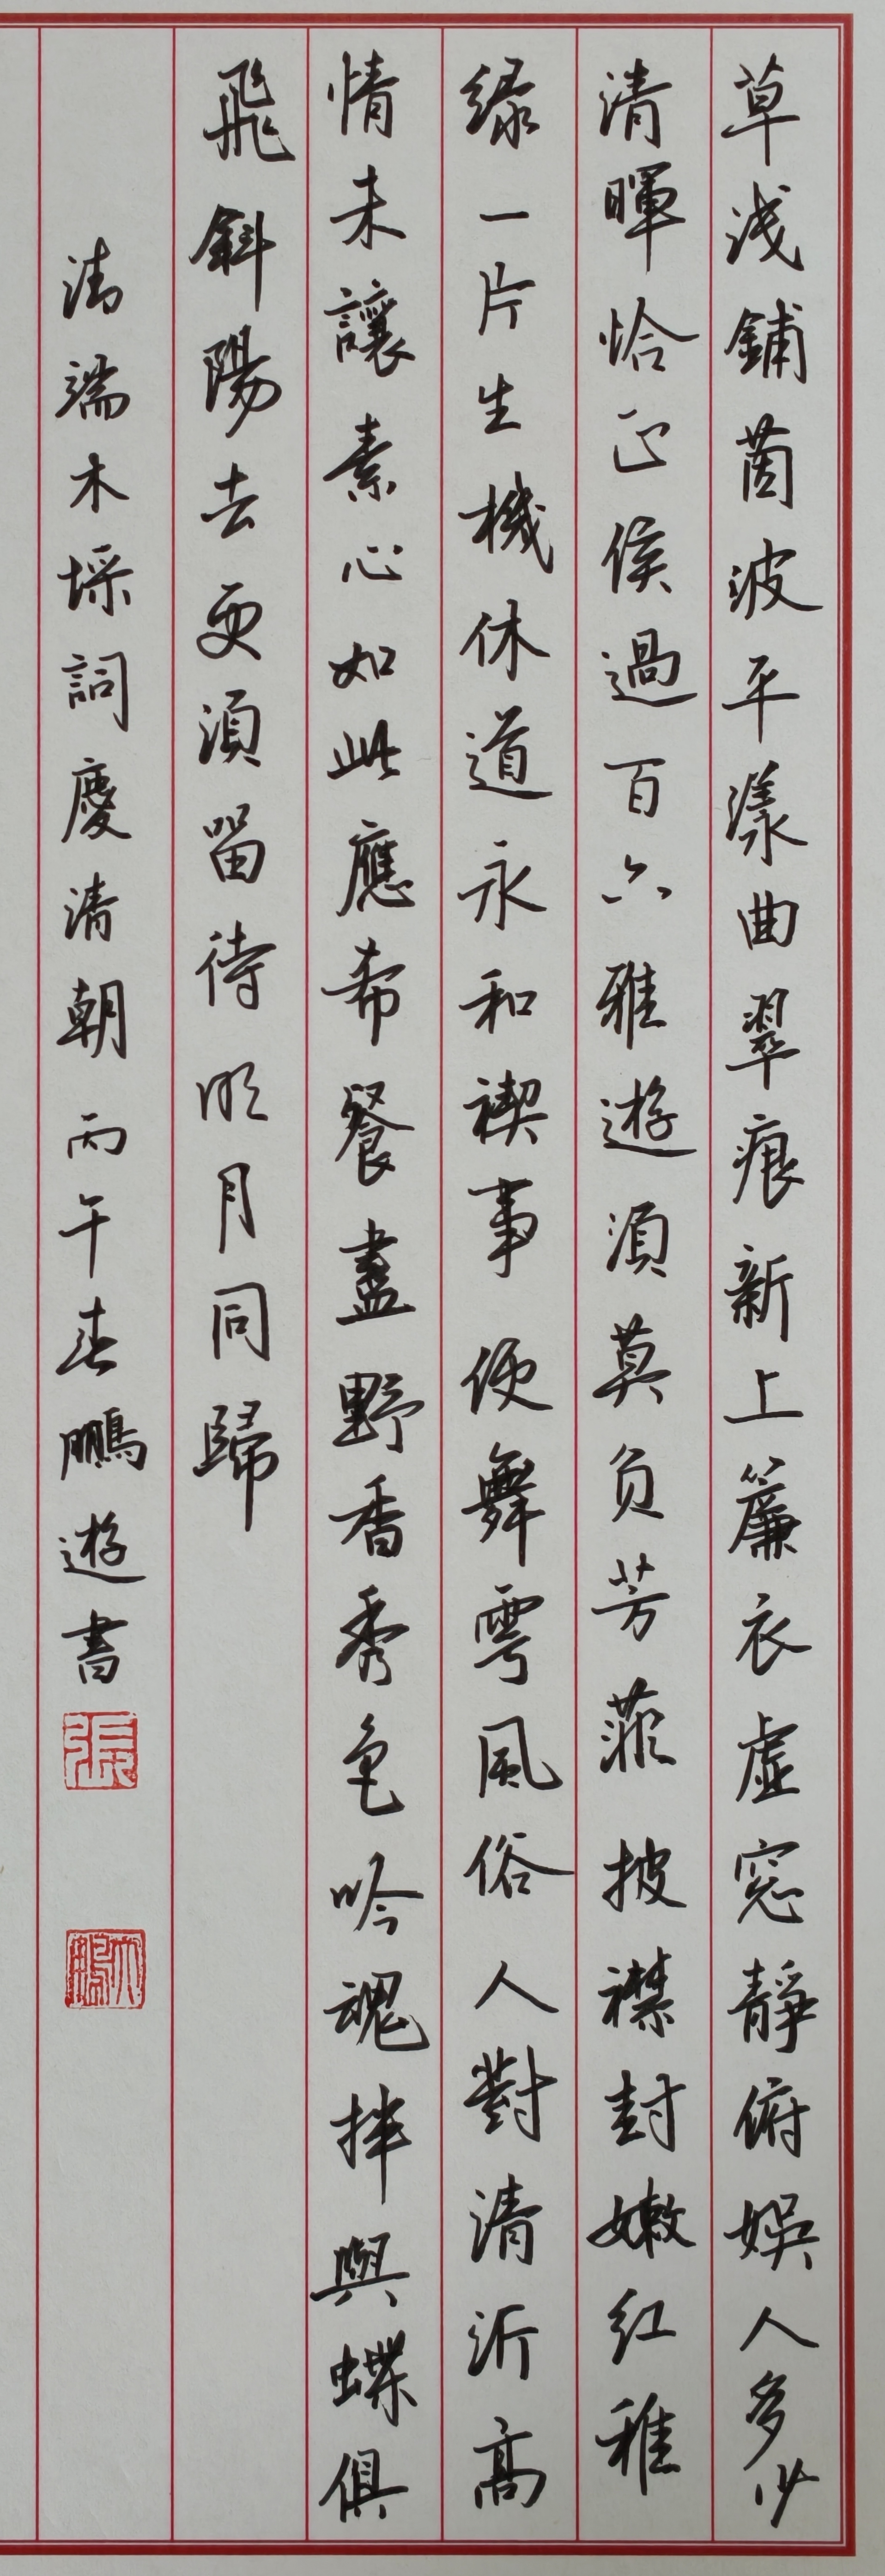 草浅鋪茵波平漾曲翠痕新上簾衣虛窓靜俯娛人多少
清暉恰正侯過百六雅遊須莫負芳菲披襟封嫩红稚
緑一片生機休道永和禊事便舞雩風俗人對清沂高
情未讓素心如此應希餐盡野香秀色吟魂拌與蝶俱
飛斜陽去更須留待明月同歸
清端木埰詞慶清朝丙午春鵬遊書
張
大鵬